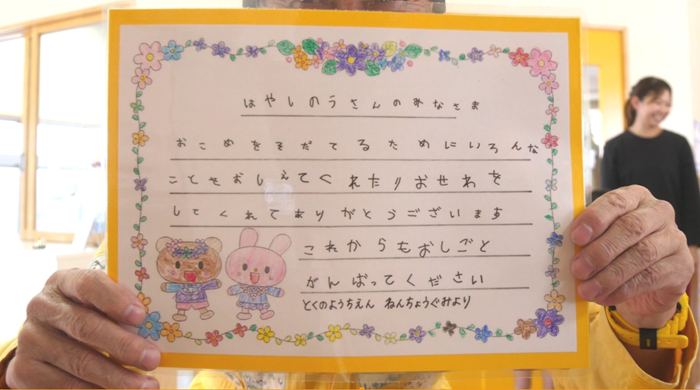 はやしのうさんのみなさま
おこめをそだてるためにいろんな
ことをおしえてくれたりおせわを
してくれてありがとうございます
これからもおしごと
がんばってください
とくのようちえん ねんちょうぐみより